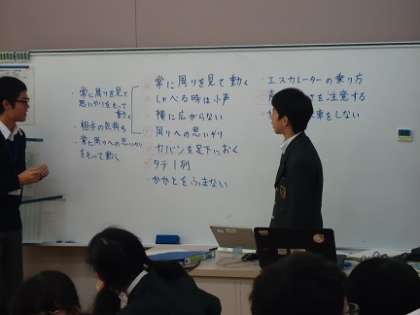 ・常に周りを見て
思いやりをもって
動く
・相手の気持ち
・常に周りへの思いやり
をもって動く
・常に周りを見て動く
・しゃべる時は小声
・横に広がらない
・周りへの思いやり
・カバンを足下におく
・タテ1列
・かかとをふまない
・エスカレーターの乗り方
を注意する
をしない